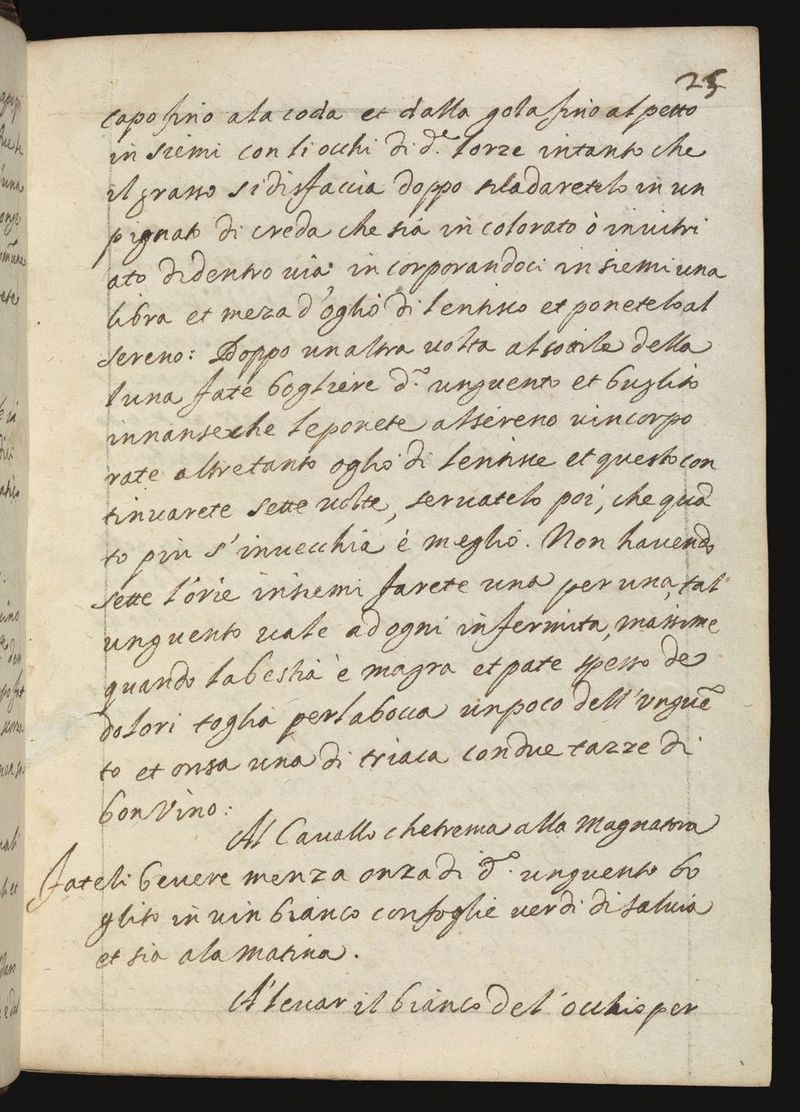 25
capo fino a la coda et dalla gola fino al petto
in siemi con li occhi di d.e lorze intanto che
il grasso si disfaccia doppo siladaretelo in un
pignato di creda che sia in colorato ò invitri
ato didentro via incorporandoci in siemi una
libra et meza d'oglio di lentisco et ponetelo al
sereno: Doppo un altra volta al sotile della
luna fate bogliere d.o unguento et buglito
innanse che le ponete al sereno vincorpo
rate altretanto oglio di lentisce et questo con
tinuarete sette volte, servatelo poi, che quã
to piu s'invecchia è meglio. Non havendo
sette l'orie insiemi farete una per una, tal
unguento vale ad ogni infermita, massime
quando la bestia è magra et pate spesso de
dolori toglia per la bocca un poco dell'unguẽ
to et onsa una di triaca con due tazze di
bon Vino:
Al Cavallo che trema alla Magnatora
fateli bevere menza onza di d.o unguento bo
glito in vin bianco con foglie verdi di salvia
et sia a la matina.
A levar il bianco del'occhio per